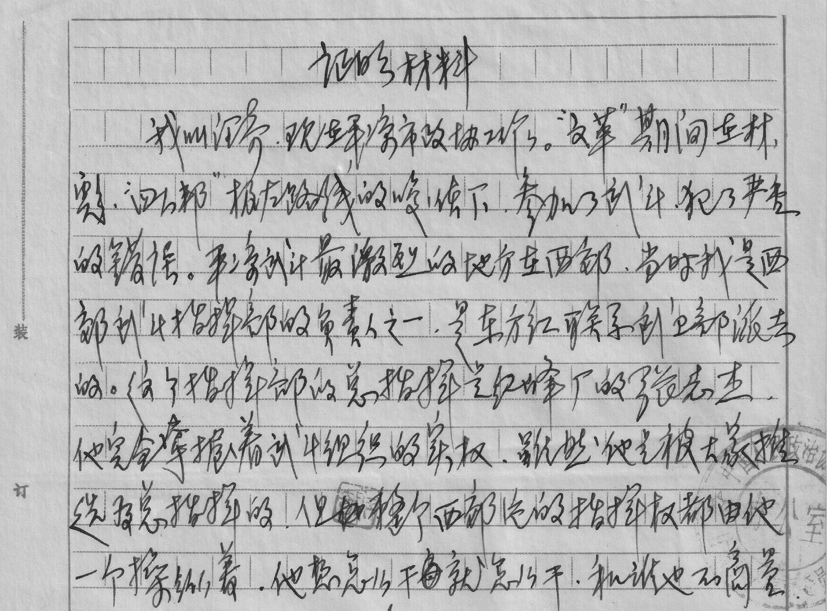 证明材料
我叫 ，现在平凉市政协工作。“文革”期间在林，
彪、“四人邦”极左路线的唆使下，参加了武斗，犯了严重
的错误。平凉武斗最激烈的地方在西郊，当时我是西
郊武斗指挥部的负责人之一，是东方红联系到卫部派去
的。这个指挥部的总指挥是红峰厂的张志杰，
他完全掌握着武斗组织的实权，虽然他是被大家推
选为总指挥的，但 整个西郊片的指挥权都由他
一个操纵着，他想怎么干就怎么干，和谁也不商量
装
订
室